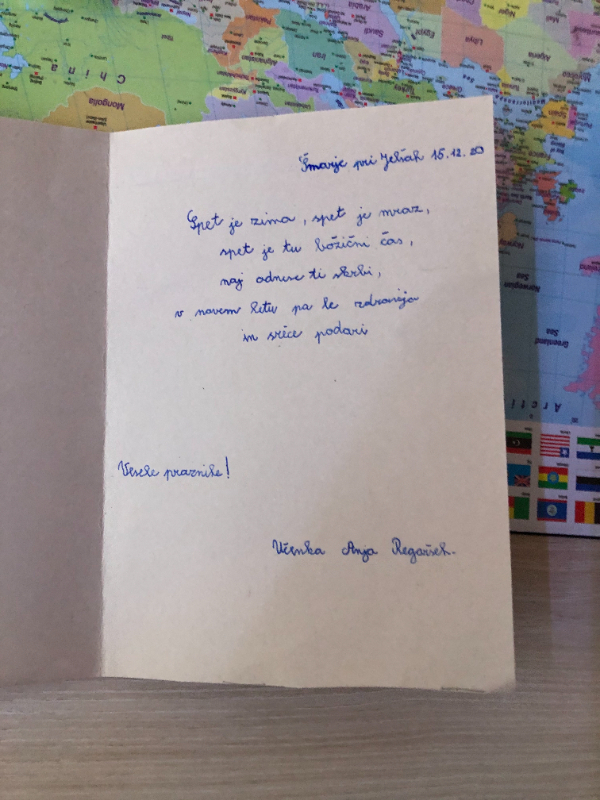 Šmarje pri Jelšah 15.12.20
Spet je zima, spet je mraz,
spet je tu božični čas,
naj odnese ti skrbi,
v novem letu pa le zdravja
in sreče podari
Vesele praznike!
Učenka Anja Regoršek.
China
Mongolia
Iran
Saudi
Arabia
Egypt
Libya
Algeria
Niger
Spain
Portugal
Norwegian
Sea
Greenland
Sea
Arcti